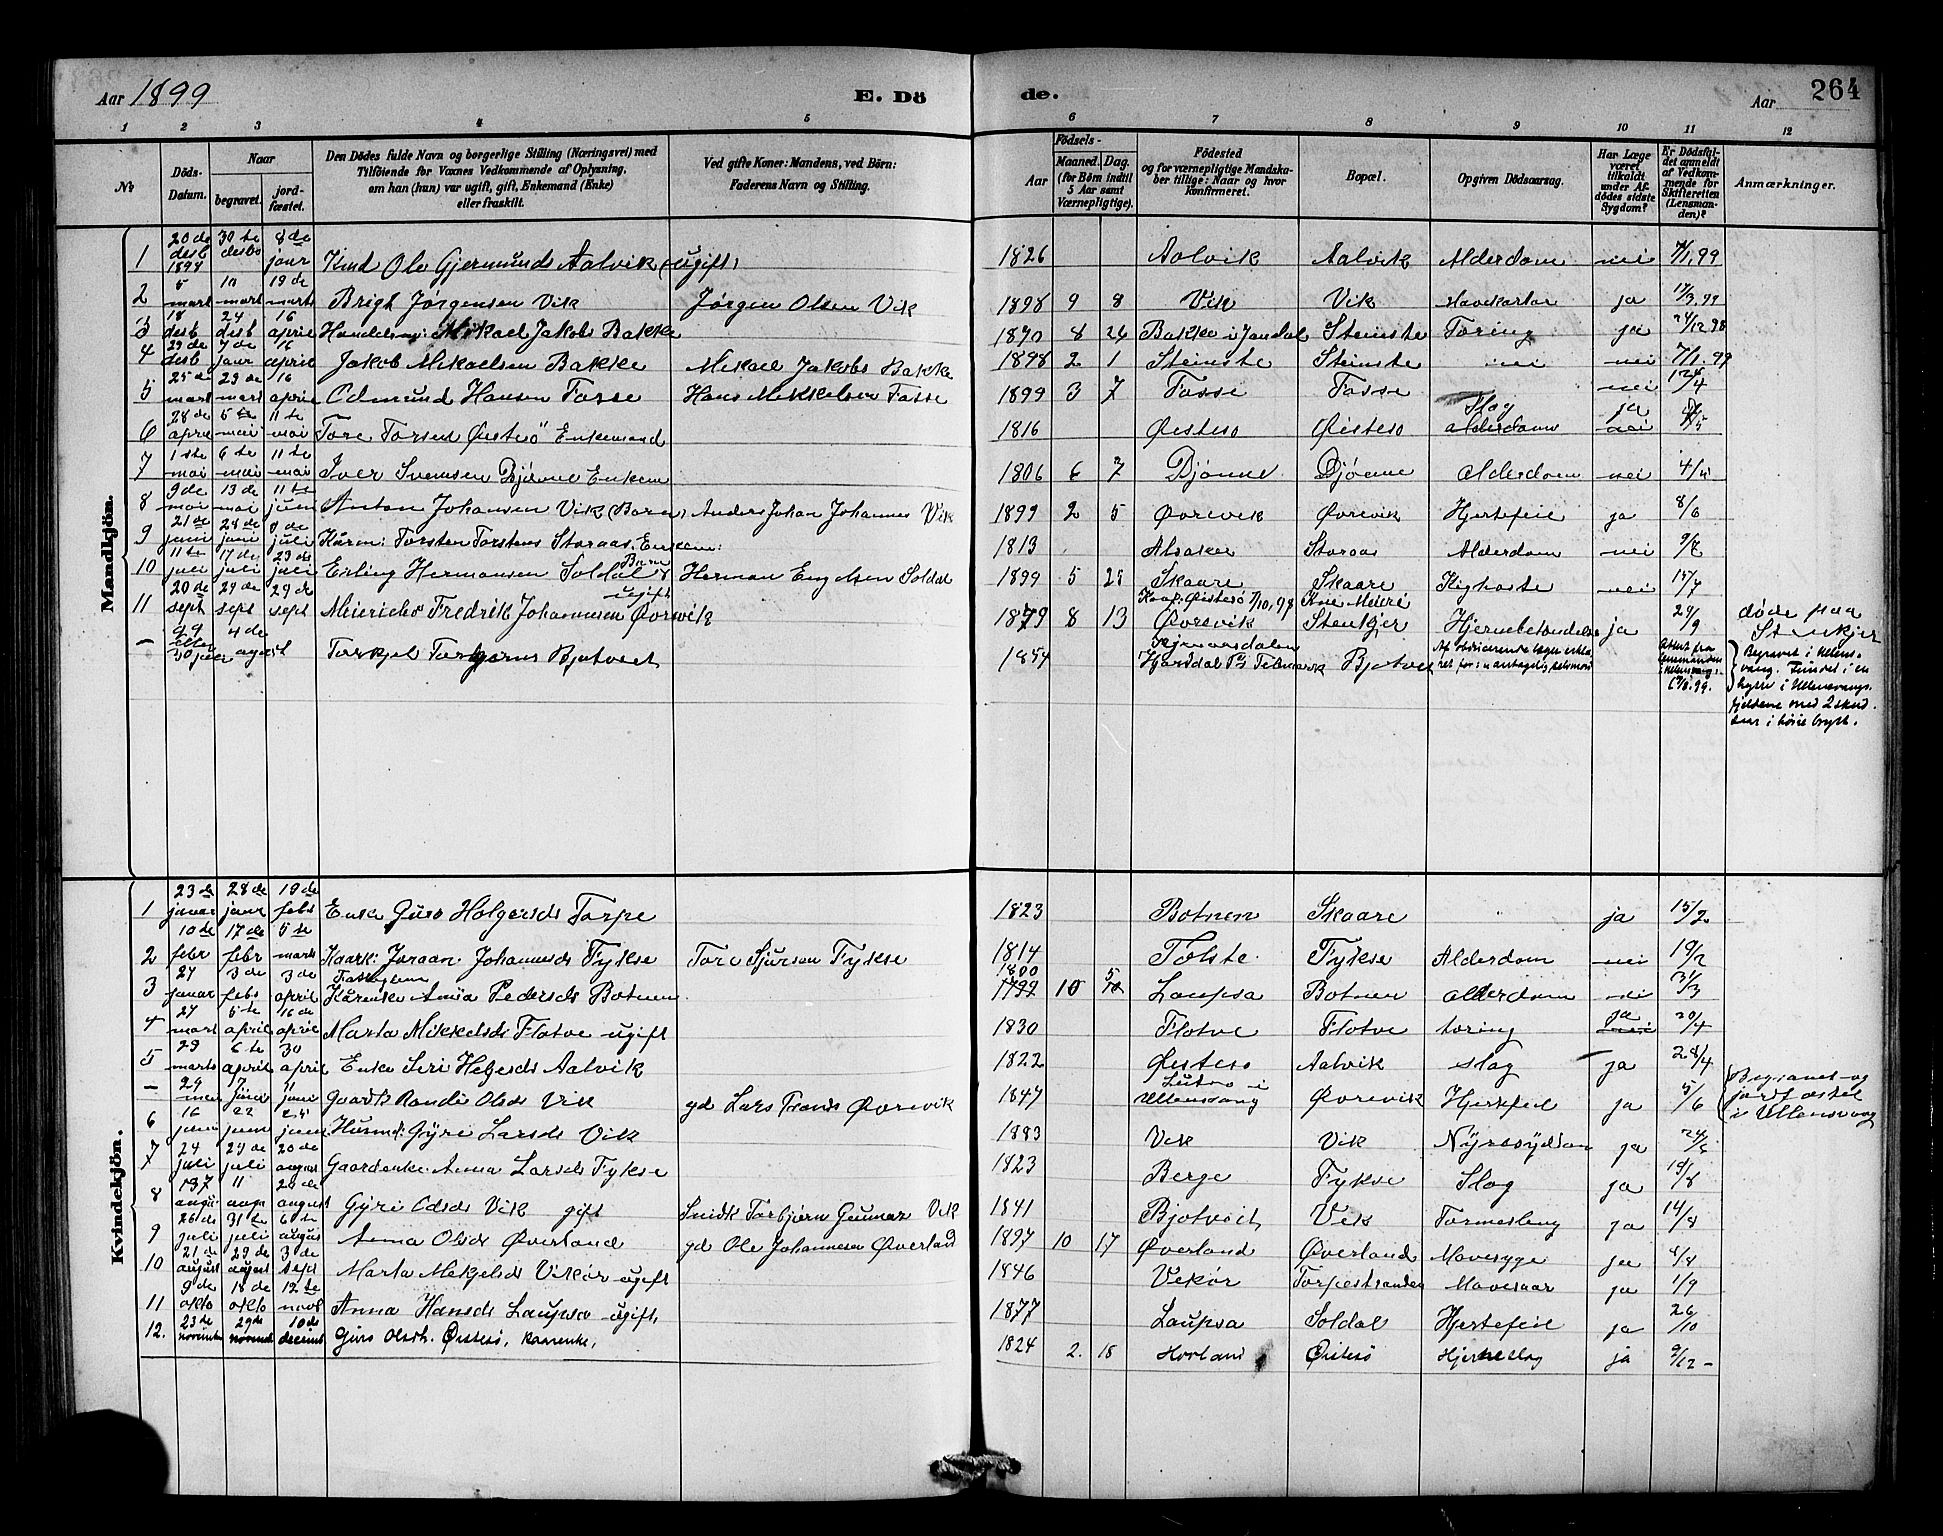 Aar 1899
E. Dö
de.
Aar
264
1 2 3 4 5 6 7 8 9 10 11 12
No
Döds-Datum.
Naar
begravet.
jord-fæstet.
Den Dödes fulde Navn og borgerlige Stilling (Næringsvei) med
Tilföiende for Voxnes Vedkommende af Oplysning,
om han (hun) var ugift, gift, Enkemand (Enke)
eller fraskilt.
Ved gifte Koner: Mandens, ved Börn:
Faderens Navn og Stilling.
Födsels-
Aar
Maaned. Dag.
(for Börn indtil
5 Aar samt
Værnepligtige).
Födested
og for værnepligtige Mandska-
ber tillige: Naar og hvor
Konfirmeret.
Bopæl.
Opgiven Dödsaarsag.
Har Læge
været
tilkaldt
under Af-
dödes sidste
Sygdom?
Er Dödsfal-
det anmeldt
af Vedkom-
mende for
Skifteretten
(Lensman-
den)?
Anmærkninger.
Mandkjön.
1 20 de desb 1898 30 te desbr 8 de janr Ole Gjermunds Aalvik (ugift) 1826 Aalvik Aalvik Alderdom nei 7/1 99
2 5 mars 10 mars 19 de mars Brigt Jørgensen Vik Jørgen Olsen Vik 1898 9 8 Vik Vik ja 17/3 99
3 18 desb 24 desb 16 april Mikael Jakobs Bakke 1870 8 26 Bakke i Jondal Steinstø Tæring ja 24/12 98
4 29 de desb 7 de janr 16 april Jakob Mikaelsen Bakke Mikael Jakobs Bakke 1898 2 1 Steinstø Steinstø nei nei 7/1 99
5 25 de mars 29 de mars 16 april Odmund Hansen Fosse Hans Mikkelsen Fosse 1899 3 7 Fosse Fosse nei 12/4
6 28 de april 5 te mai 11 te mai Tore Torsen Øistesö Enkemand 1816 Øistesö Øistesö Slag alderdom ja nei
7 1 ste mai 6 te mai 11 te mai Iver Svensen Djönne Enkem 1806 6 7 Djönne Djönne Alderdom nei
8 9 de mai 13 de mai 11 te juni Anton Johansen Vik (Barn) Anders Johan Johannes Vik 1899 2 5 Øvrevik Øvrevik Hjertefeil ja 8/6
9 21 de juni 28 de juni 9 de juli Torsten Torstens Storaas, Enkem: 1813 Alsaker Storaas Alderdom nei
10 11 te juli 17 de juli 23 de juli Erling Hermansen Soldal Barn Herman Engelsen Soldal 1899 5 28 Skaare Skaare Kighoste nei 15/7
11 20 de sept 29 de sept 29 de sept Fredrik Johannessen Øvrevik ugift 1879 8 13 Konf. Øistesö 7/10, 94 Øvrevik Stenkjer Hjernebetændelse ja 29/9 døde paa Stenkjer
— 29 eller 30 juni 4 de august Torkjel Torbjørns Bjotveit 1854 Hjartdal Pg Telemark Bjotveit
Begravet i Ullens-
vang. Fundet i en
hytte i Ullensvangs
fjeldene med 2 skud
saar i höire bryst.
Kvindekjön.
1 23 de januar 28 de janr 19 de febr Enke Guro Holgersd Torpe 1823 Botnen Skaare ja 15/2
2 10 de febr 17 de febr 5 te mars Johannesd Fykse Tore Sjursen Fykse 1814 Tolste Fykse Alderdom nei 19/2
3 27 januar 3 de febr 3 de april Kårenke Anna Pedersd Botnen 1800 1799 10 5 Laupsa Botnen alderdom nei 3/3
4 27 mars 5 te april 16 de april Marta Mikkelsd Flotve ugift 1830 Flotve Flotve tæring ja nei 20/4
5 29 marts 6 te april 30 april Enke Siri Helgesd Aalvik 1822 Øistesö Aalvik Slag ja 28/4
— 29 mai 7 juni 11 juni Randi Olsd Vik gd Lars Øvrevik 1847 Lutro i Ullensvang Øvrevik Hjertefeil ja 5/6 Begravet og jordfæstet i Ullensvang
6 16 juni 22 juni 25 juni Gyri Larsd Vik 1883 Vik Vik ja
7 24 juli 29 de juli 20 de august Gaardenke Anna Larsd Fykse 1823 Berge Fykse Slag ja 19/8
8 11 20 de august Gyri Odsd Vik gift Smidt Torbjørn Gunnar Vik 1841 Bjotveit Vik ja 14/8
9 26 de juli 31 te juli 6 te august Anna Olsd Øverland gd Ole Johannesen Øverland 1897 10 17 Øverland Øverland Mavesyge ja
10 21 de august 29 de august 3 de sept Marta Vikør ugift 1846 Vikør Torpestranden Mavesaar ja 1/9
11 9 de okto 18 de okto 12 te novb Anna Hansd Laupsa ugift, 1877 Laupsa Soldal Hjertefeil ja 26/10
12. 23 de novembr 29 de novemb 10 de decemb Guro Olsdt. Øistesö, Kaarenke, 1824 2. 18 Øistesö Hjerneslag ja 9/12 -